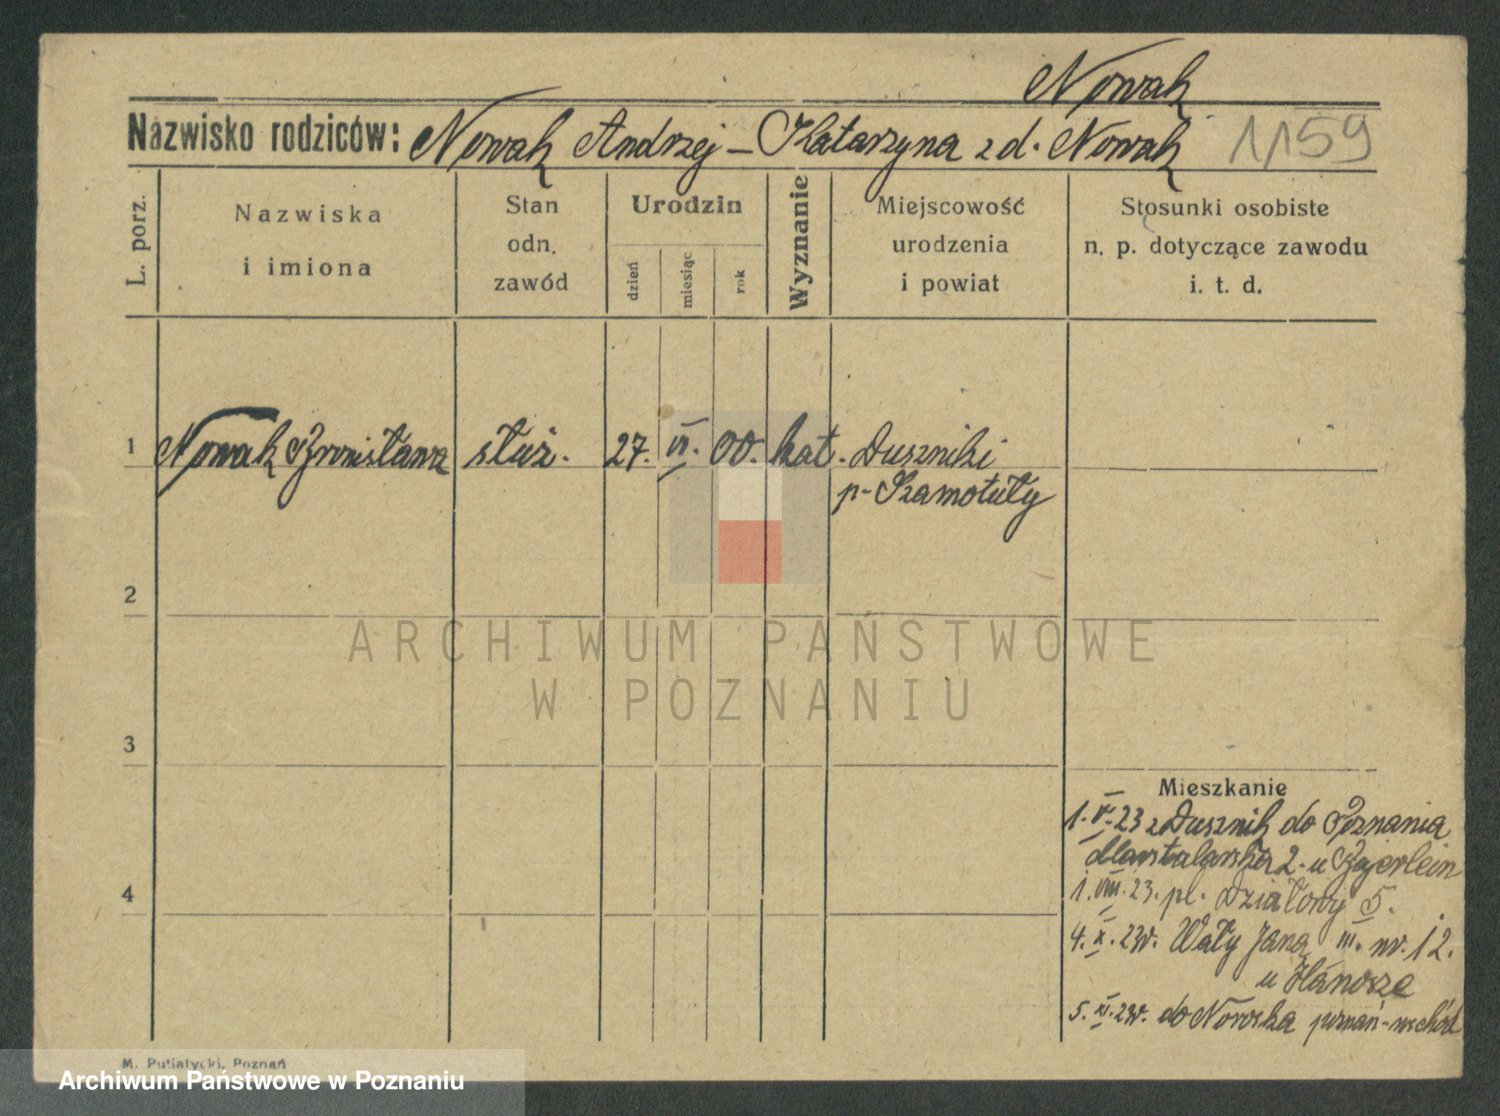 Nowak
Nazwisko rodziców: Nowak Andrzej – Katarzyna z d. Nowak 1159
L. porz.
Nazwiska i imiona
Stan odn. zawód
Urodzin
dzień
miesiąc
rok
Wyznanie
Miejscowość urodzenia i powiat
Stosunki osobiste n. p. dotyczące zawodu i. t. d.
1 Nowak Bronisława służ. 27. VI. 00. kat. Duszniki
p– Szamotuły
2
ARCHIWUM PAŃSTWOWE
W POZNANIU
3
Mieszkanie
1. V. 23 z Dusznik do Poznania
Masztalarska 2. u Bajerlein
4
1. VIII. 23. pl. Działowy 5.
4. X. 23r. Wały Jana III. nr. 12.
u
5. XI. 23r. do poznań-wschód
M. Putiatycki, Poznań
Archiwum Państwowe w Poznaniu